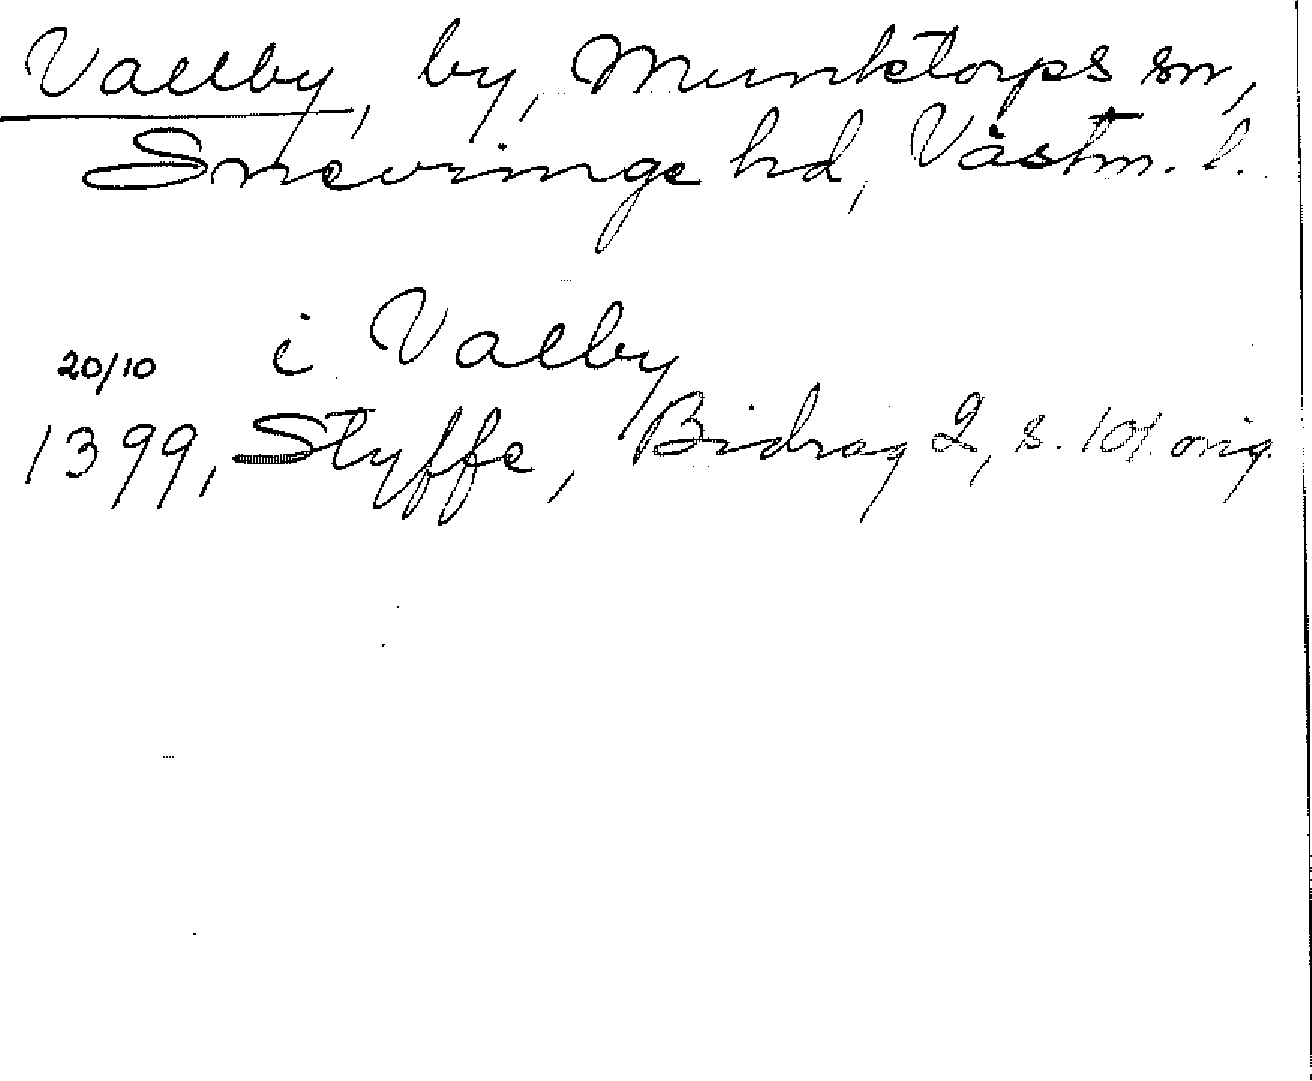 Vallby, by, Munktorps sn,
Snevringe hd, Västm. l.
20/10 i Valby
1399, Styffe, Bidrag 2, s. 101. orig.